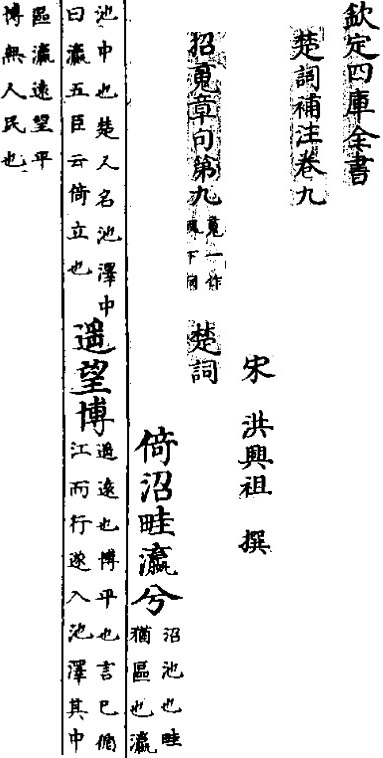 欽定四庫全書
楚詞補注卷九
宋 洪興祖 撰
招䰟章句第九 䰟一作魂下同 楚詞
倚沼畦瀛兮 沼池也畦猶區也瀛
池中也楚人名池澤中曰瀛五臣云倚立也 遥望博 遥遠也博平也言已循江而行遂入池澤其中
區瀛遠望平博無人民也